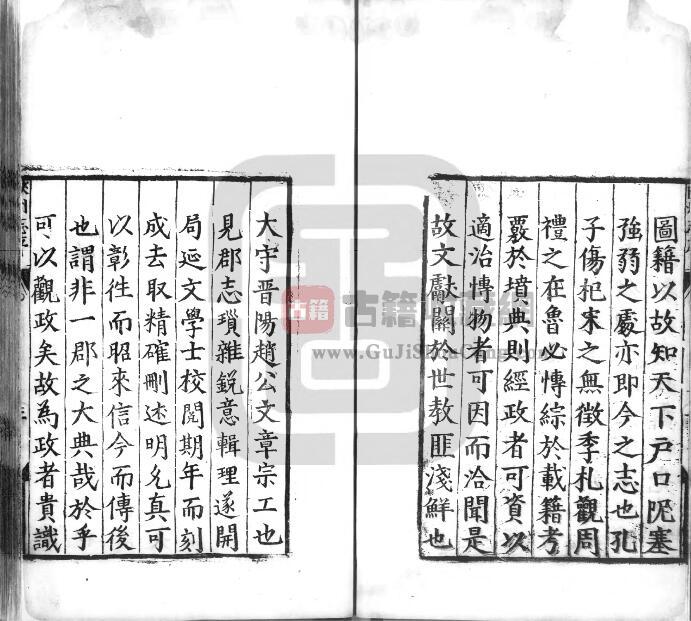 圖籍以故知天下戸口阨塞
強弱之處亦即今之志也孔
子傷杞宋之無徵季札觀周
禮之在魯必博綜於載籍考
覈於墳典則經政者可資以
適治博物者可因而洽聞是
故文獻關於世教匪淺鮮也
大宇晋陽趙公文章宗工也
見郡志瑣雜鋭意輯理遂開
局延文學士校閲期年而刻
成去取精確刪述明允真可
以彰徃而昭來信今而傳後
也謂非一郡之大典哉於乎
可以觀政矣故為政者貴識
古籍
www.GuJiShuCang.com